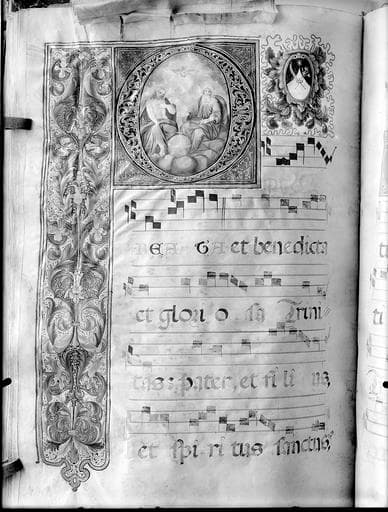 BEA GA et benedicta
et glori o sa Trini
tas: pater, et fi li us,
et spi ri tus sanctus